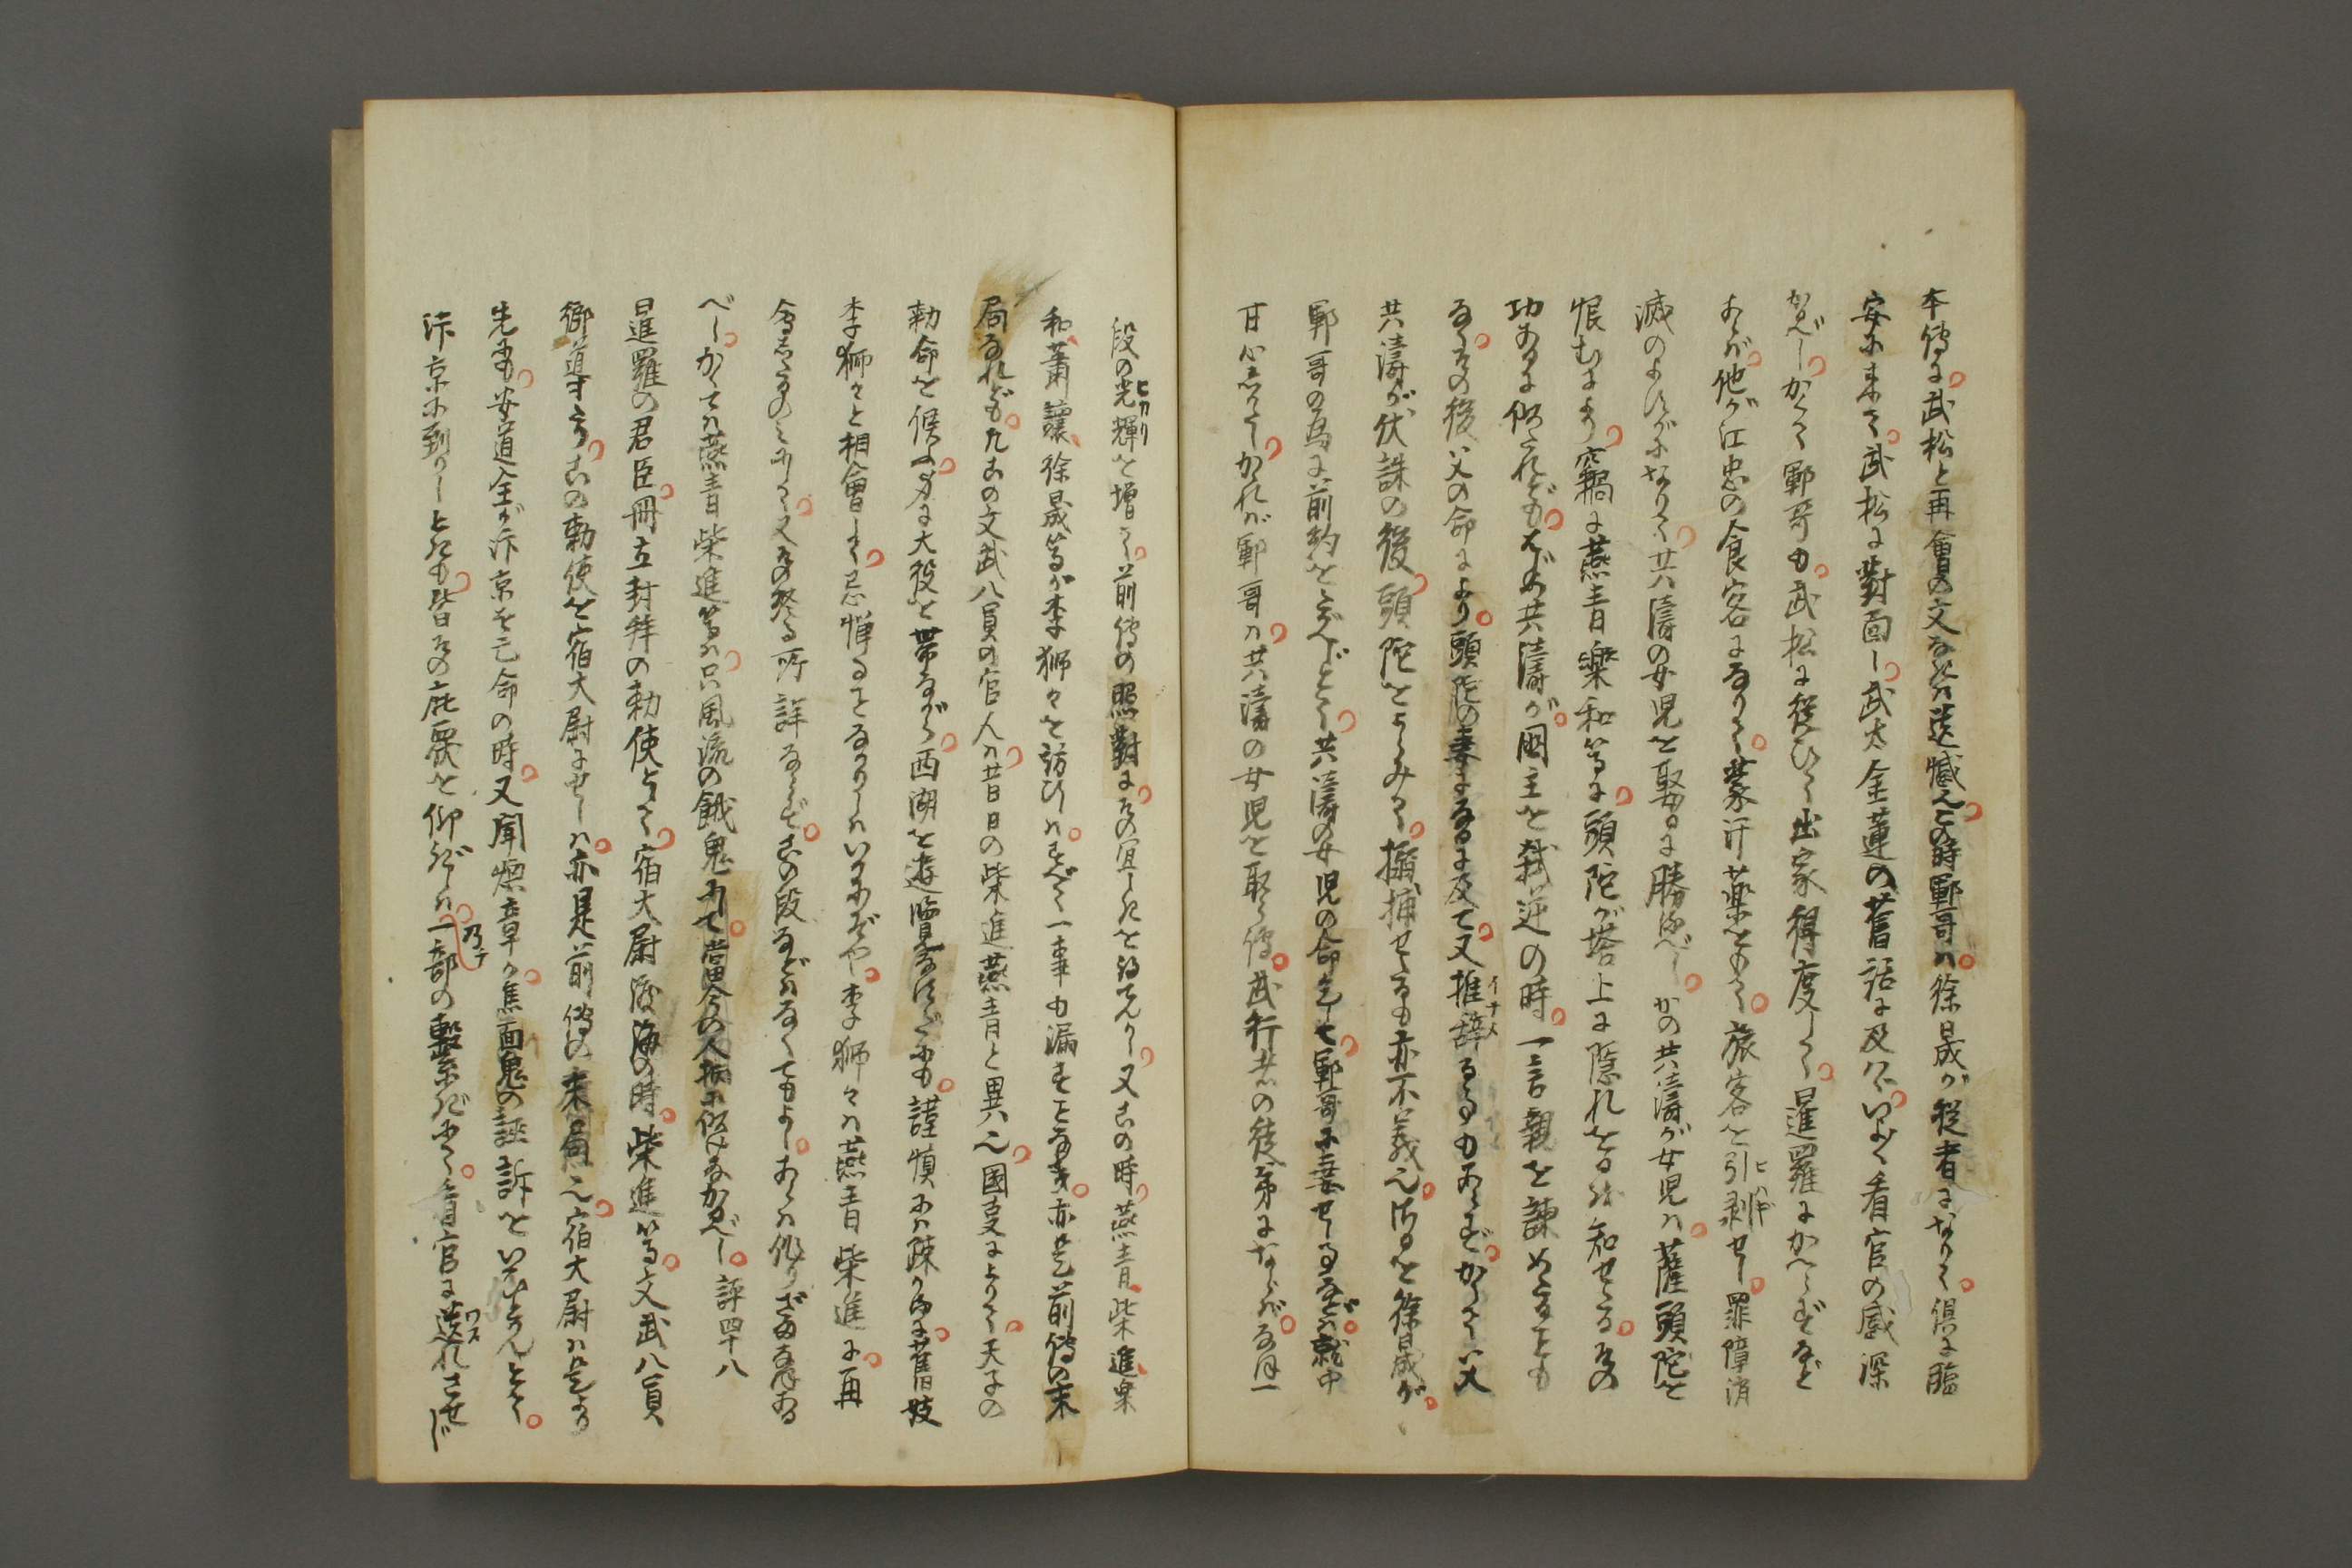 本傳に武松と再會の文なきは遺憾也この時鄆哥は徐晟が従者になりて倶に臨
安に来て武松に對面し武大金蓮の舊話に及バゞいよ〳〵看官の感深
かるべしかくて鄆哥も武松に従ひて出家得度して暹羅にかへらずなど
あらバ他が江忠の食客になりて蒙汗薬をもて旅客を引剥せし罪障消
滅のよすがになりて共濤の女児を娶るに勝るべしかの共濤が女児ハ薩頭陀を
恨むにより竊に燕青樂和等に頭陀が塔上に隠れをるを知せたるその
功あるに似たれどもはじめ共濤が國主を弑逆の時一言親を諫めたることも
なくその後父の命により頭陀の妻になるに及て又推辞ることもあらずかくて父
共濤が伏誅の後頭陀をよくみて搦捕せたるも亦不義也さるを徐晟が
鄆哥の為に前約をたがへじとて共濤の女児の命乞して鄆哥に妻せしことなどハ就中
甘心しがたしかゝれバ鄆哥ハ共濤の女児を取らず武行者の徒弟にならバなほ一
段の光輝を増て前傳の照對にその宜しきを得てん又この時燕青柴進樂
和蕭譲徐晟等が李獅々を訪ひしハすべて一事も漏すことなき亦是前傳の末
局なれども只この文武八員の官人ハ昔日の柴進燕青と異也國王によりて天子の
勅命を候ふ身に大役を帯ながら西湖を遊覧なすだにも謹慎にハ疎かるに舊妓
李獅々と相會して忌憚ることなかりしハいかにぞや李獅々ハ燕青柴進に再
會したるのみにて又その終る所詳ならずこの段などハなくてもよしあらバ作りざま有
べしかくてハ燕青柴進等ハ只風流の餓鬼にて當今の人物に似げなかるべし評四十八
暹羅の君臣冊立封拜の勅使として宿大尉渡海の時柴進等文武八員
郷道すこの勅使を宿大尉にせしハ亦是前傳の末局也宿大尉ハ是より
先にも安道全が汴京を亡命の時又聞煥章が焦面鬼の誣訴を
汴京に到りしときも皆その庇覆を仰ぎしハ一部の繫ぎにて看官に遺れさせじ